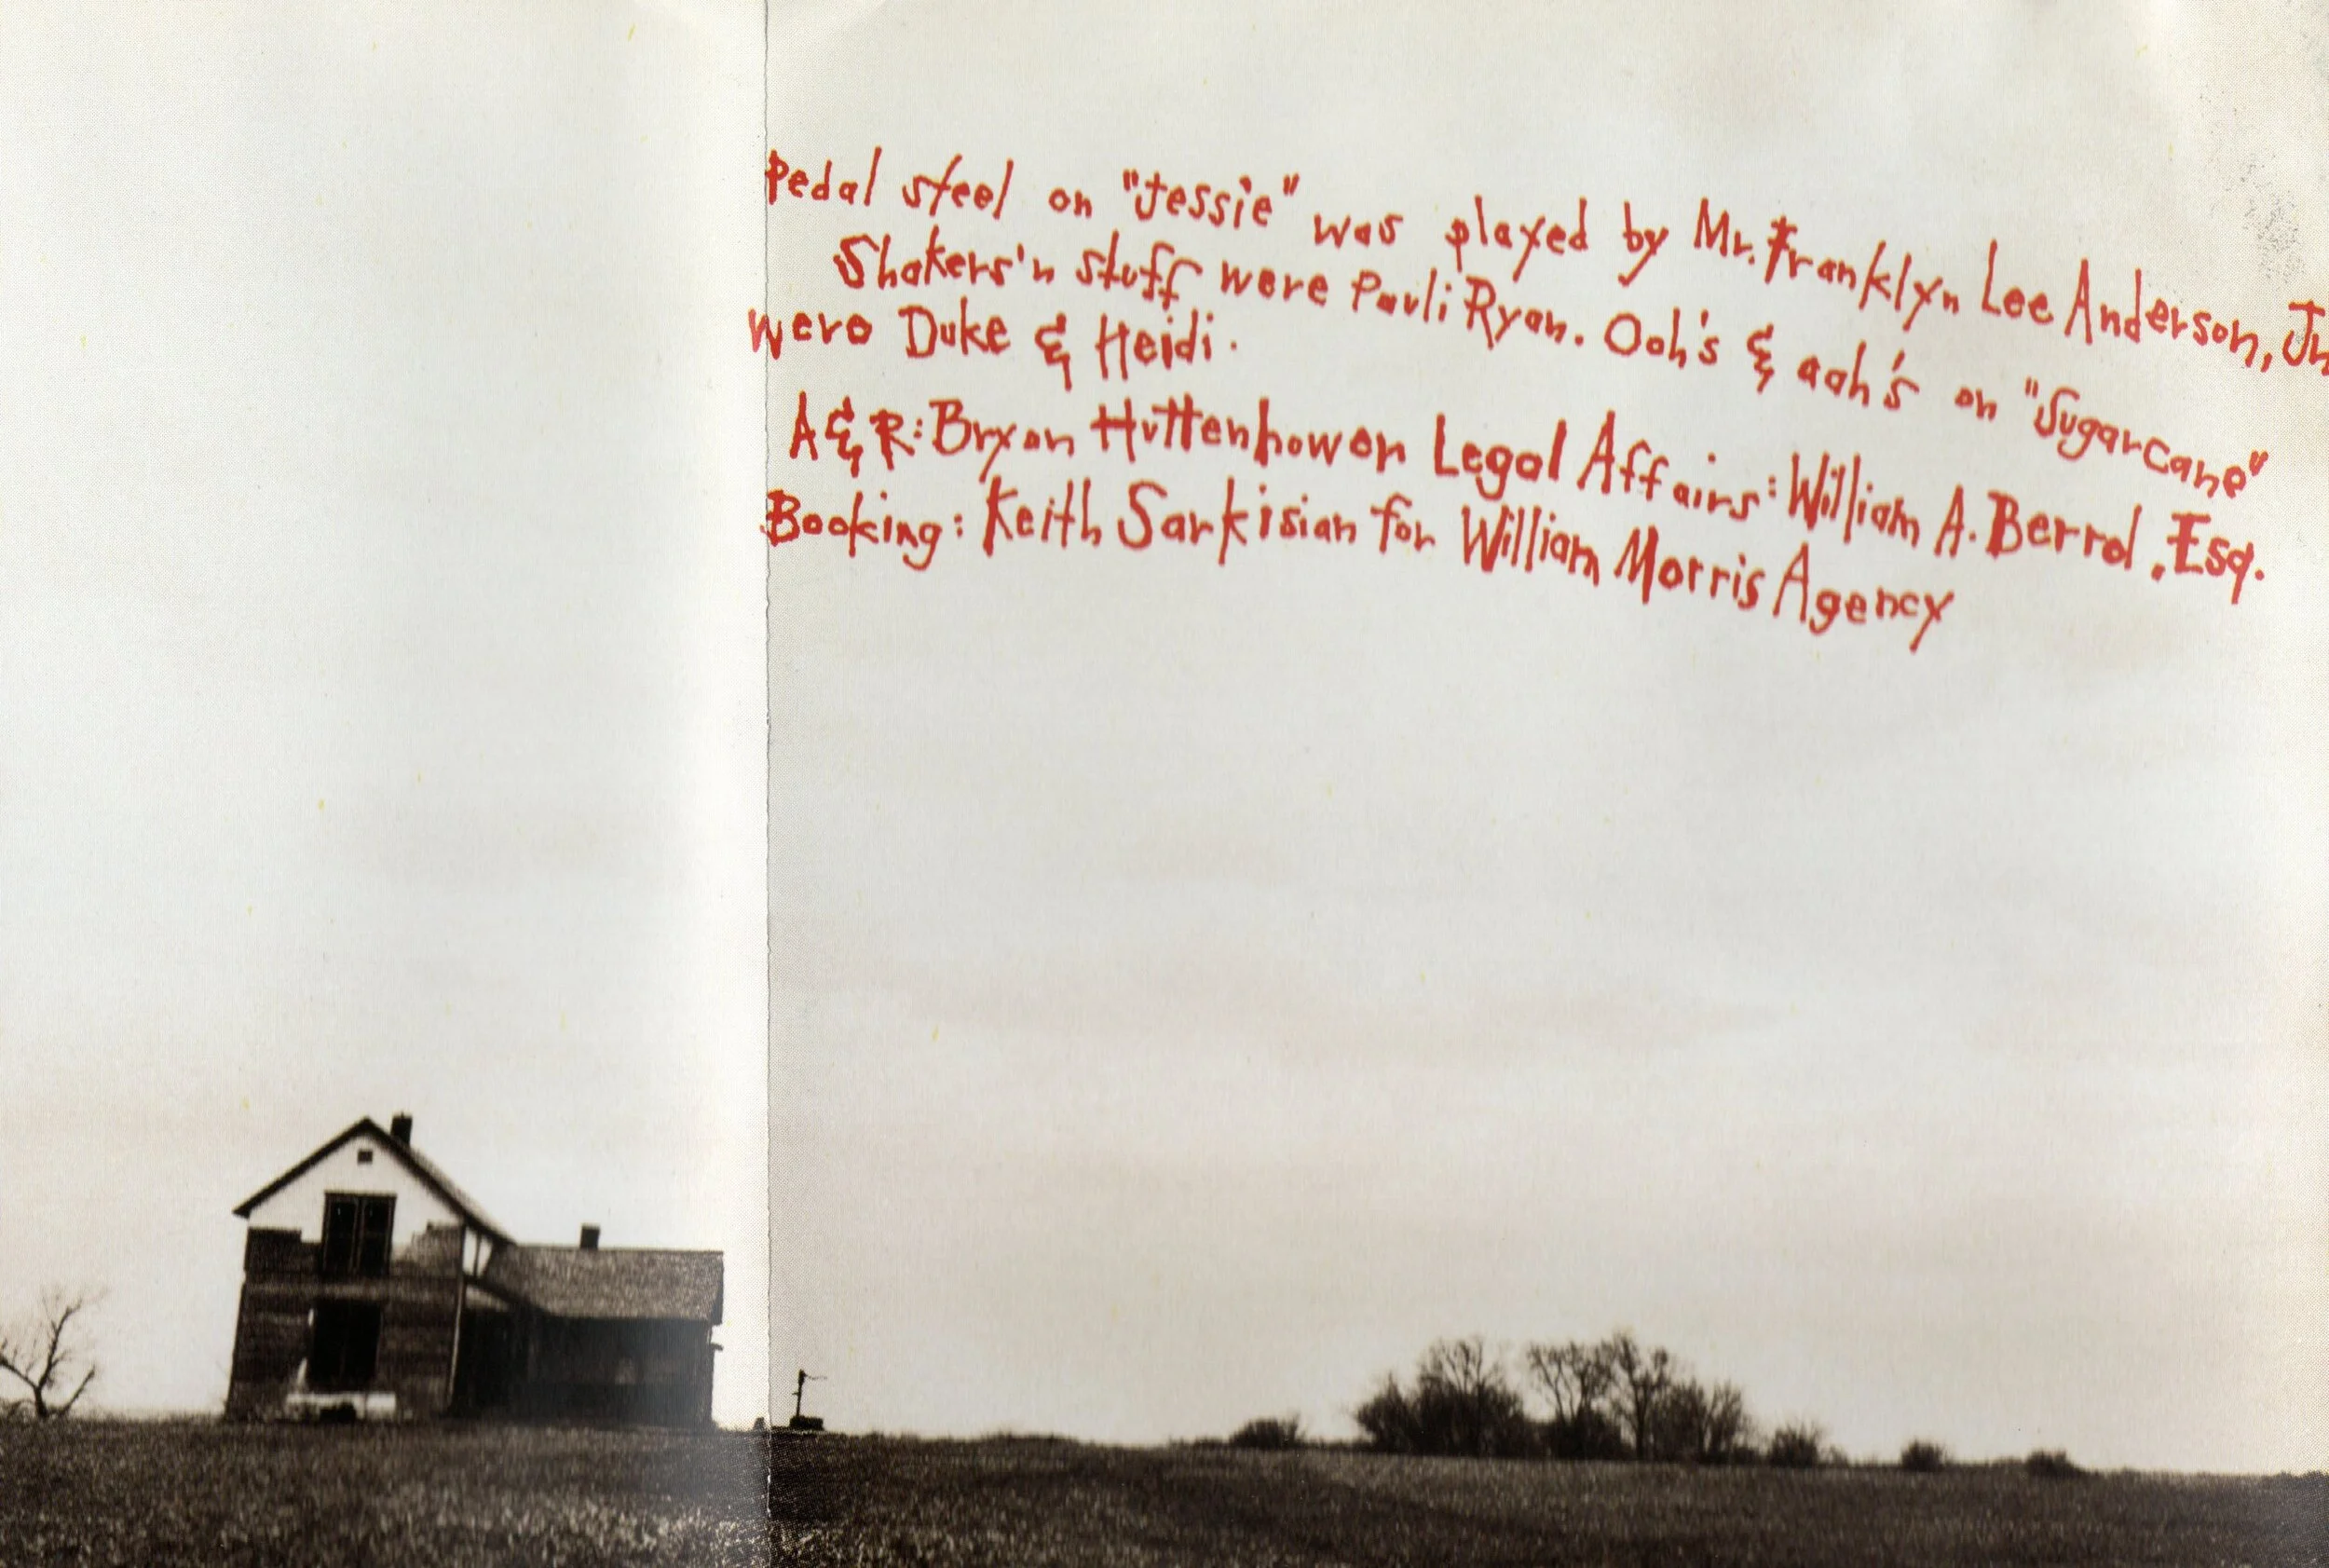 Pedal steel on "Jessie" was played by Mr. Franklyn Lee Anderson, Jr
Shakers 'n stuff were Pauli Ryan. Ooh's & aah's on "Sugarcane"
were Duke & Heidi.
A&R: Bryan Huttenhower Legal Affairs: William A. Berrol, Esq.
Booking: Keith Sarkisian for William Morris Agency